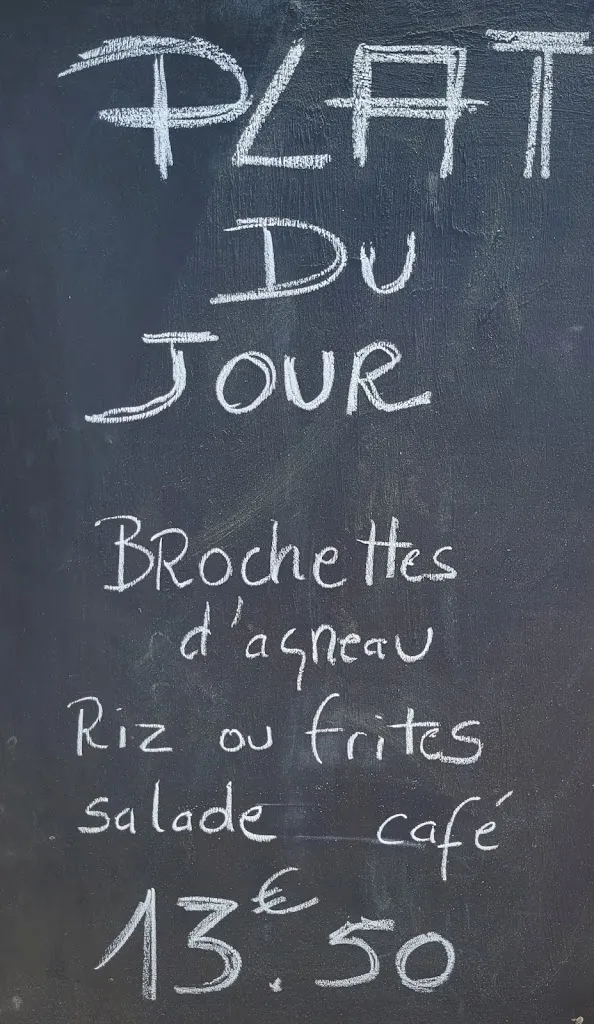 PLAT
DU
JOUR
BRochettes
d'agneau
Riz ou frites
salade café
13€.50